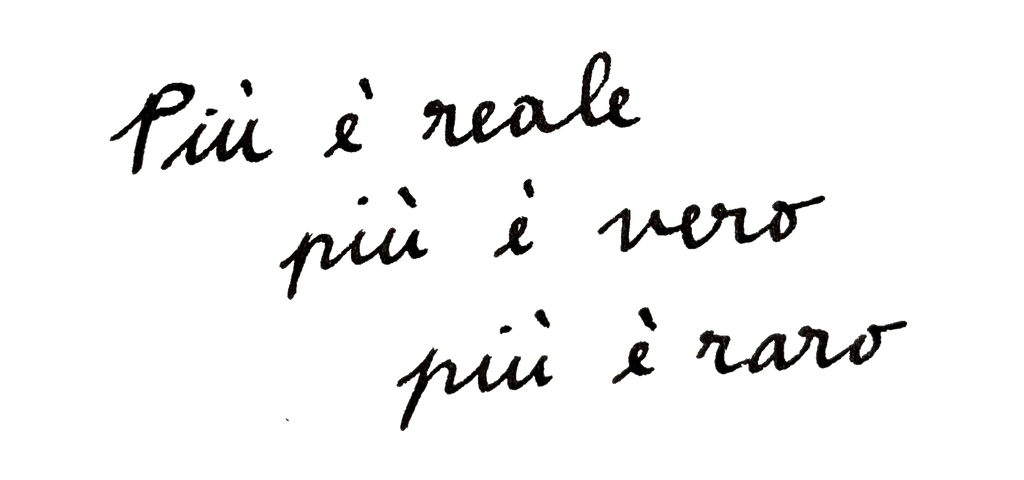 Più è reale
più è vero
più è raro